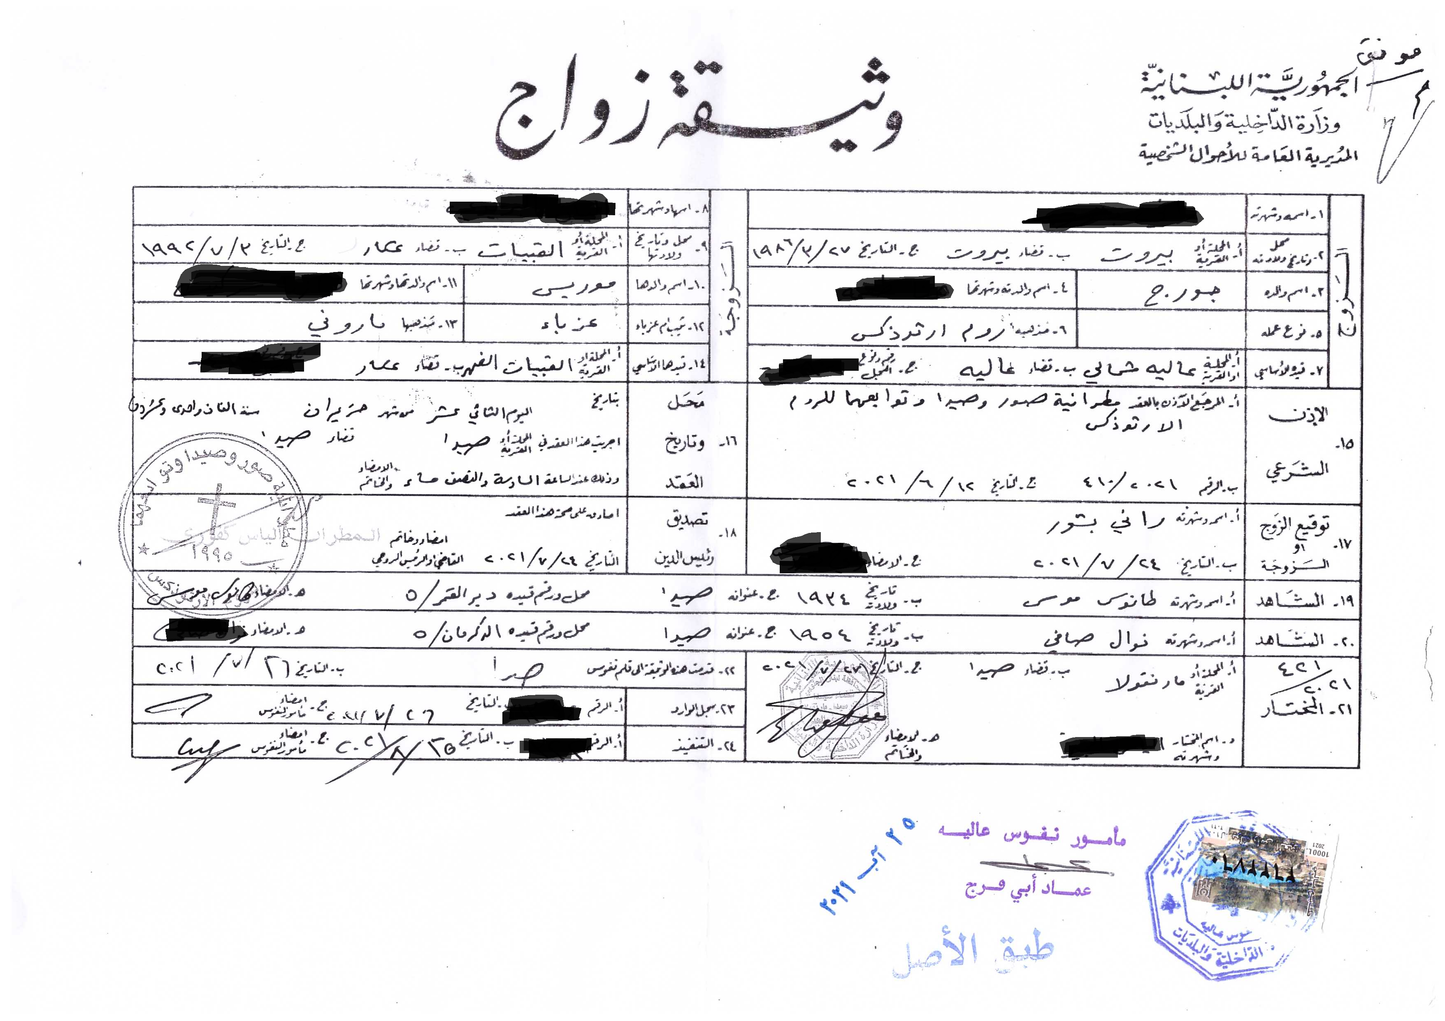 موفق
الجمهورية اللبنانية
وزارة الداخلية والبلديات
المديرية العامة للأحوال الشخصية
وثيقة زواج
الزوج
١- اسمه وشهرته
٢- محل وتاريخ ولادته أ- المحلة أو القرية بيروت ب- قضاء بيروت ج- التاريخ ٢٧/٣/١٩٨٦
٣- اسم والده جورج ٤- اسم والدته وشهرتها
٥- نوع عمله ٦- مذهبه روم ارثوذكس
٧- قيده الأساسي أ- المحلة أو القرية عاليه شمالي ب- قضاء عاليه ج- رقم ونوع السجل
الزوجة
٨- اسمها وشهرتها
٩- محل وتاريخ ولادتها أ- المحلة أو القرية القبيات ب- قضاء عكار ج- التاريخ ٣/٧/١٩٩٢
١٠- اسم والدها موريس ١١- اسم والدتها وشهرتها
١٢- ثيب ام عزباء عزباء ١٣- مذهبها ماروني
١٤- قيدها الأساسي أ- المحلة أو القرية القبيات ب- قضاء عكار
١٥- الإذن الشرعي أ- المرجع الآذن بالعقد مطرانية صور وصيدا وتوابعهما للروم
الارثوذكس
ب- الرقم ٤١٠/٢٠٢١ ج- التاريخ ١٢/٦/٢٠٢١
١٦- محل وتاريخ العقد بتاريخ اليوم الثاني عشر من شهر حزيران سنة الفان واحدى وعشرون
اجريت هذا العقد في المحلة أو القرية صيدا قضاء صيدا
وذلك عند الساعة السادسة والنصف مساء الامضاء والخاتم
١٧- توقيع الزوج أو الزوجة أ- اسم وشهرته راني بشور
ب- التاريخ ٢٤/٧/٢٠٢١ ج- الامضاء
١٨- تصديق رئيس الدين اصادق على صحة هذا العقد
امضاء وخاتم
التاريخ ٢٤/٧/٢٠٢١ القاضي او الرئيس الروحي
المطران الياس كفوري
صور وصيدا وتوابعهما
١٩٩٥
١٩- الشاهد أ- اسم وشهرته طانوس موسى ب- تاريخ ولادته ١٩٣٤ ج- عنوانه صيدا محل ورقم قيده دير القمر/٥ هـ- الامضاء
٢٠- الشاهد أ- اسم وشهرته نوال صافي ب- تاريخ ولادته ١٩٥٤ ج- عنوانه صيدا محل ورقم قيده الدكرمان/٥ هـ- الامضاء
٤٢١/٢٠٢١
٢١- المختار أ- المحلة أو القرية مار نقولا ب- قضاء صيدا ج- التاريخ ٢٧/٧/٢٠٢١
د- اسم المختار وشهرته هـ- الامضاء والخاتم
٢٢- قدمت هذه الوثيقة الى قلم نفوس صيدا ب- التاريخ ٢٦/٧/٢٠٢١
٢٣- سجل الوارد أ- الرقم ب- التاريخ ٢٦/٧/٢٠٢١ ج- امضاء مأمور النفوس
٢٤- التنفيذ أ- الرقم ب- التاريخ ٢٥/٨/٢٠٢١ ج- امضاء مأمور النفوس
مأمور نفوس عاليه
عماد أبي فرج
٢٥ آب ٢٠٢١
طبق الأصل
10001
2021
نفوس عاليه
الداخلية والبلديات